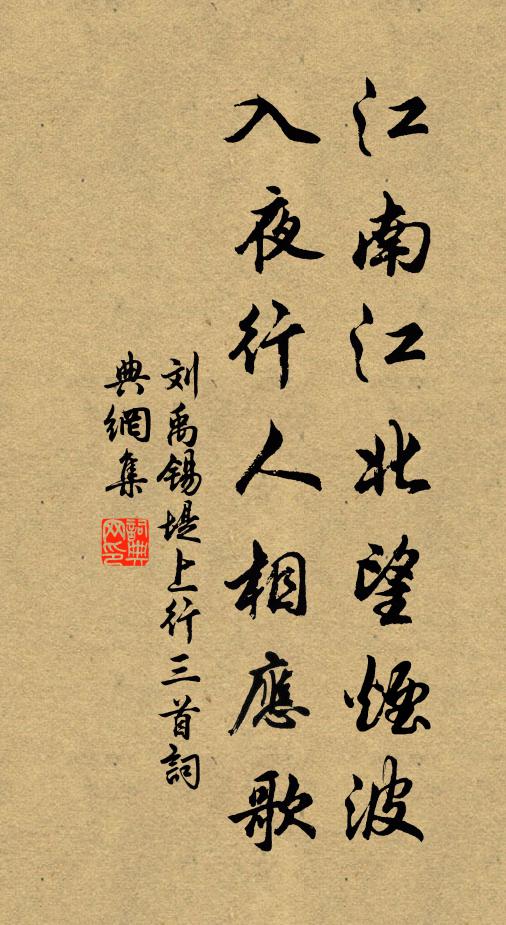 江南江北望煙波
入夜行人相應歌
刘禹锡堤上行三首詞
典網集
詞典
网印